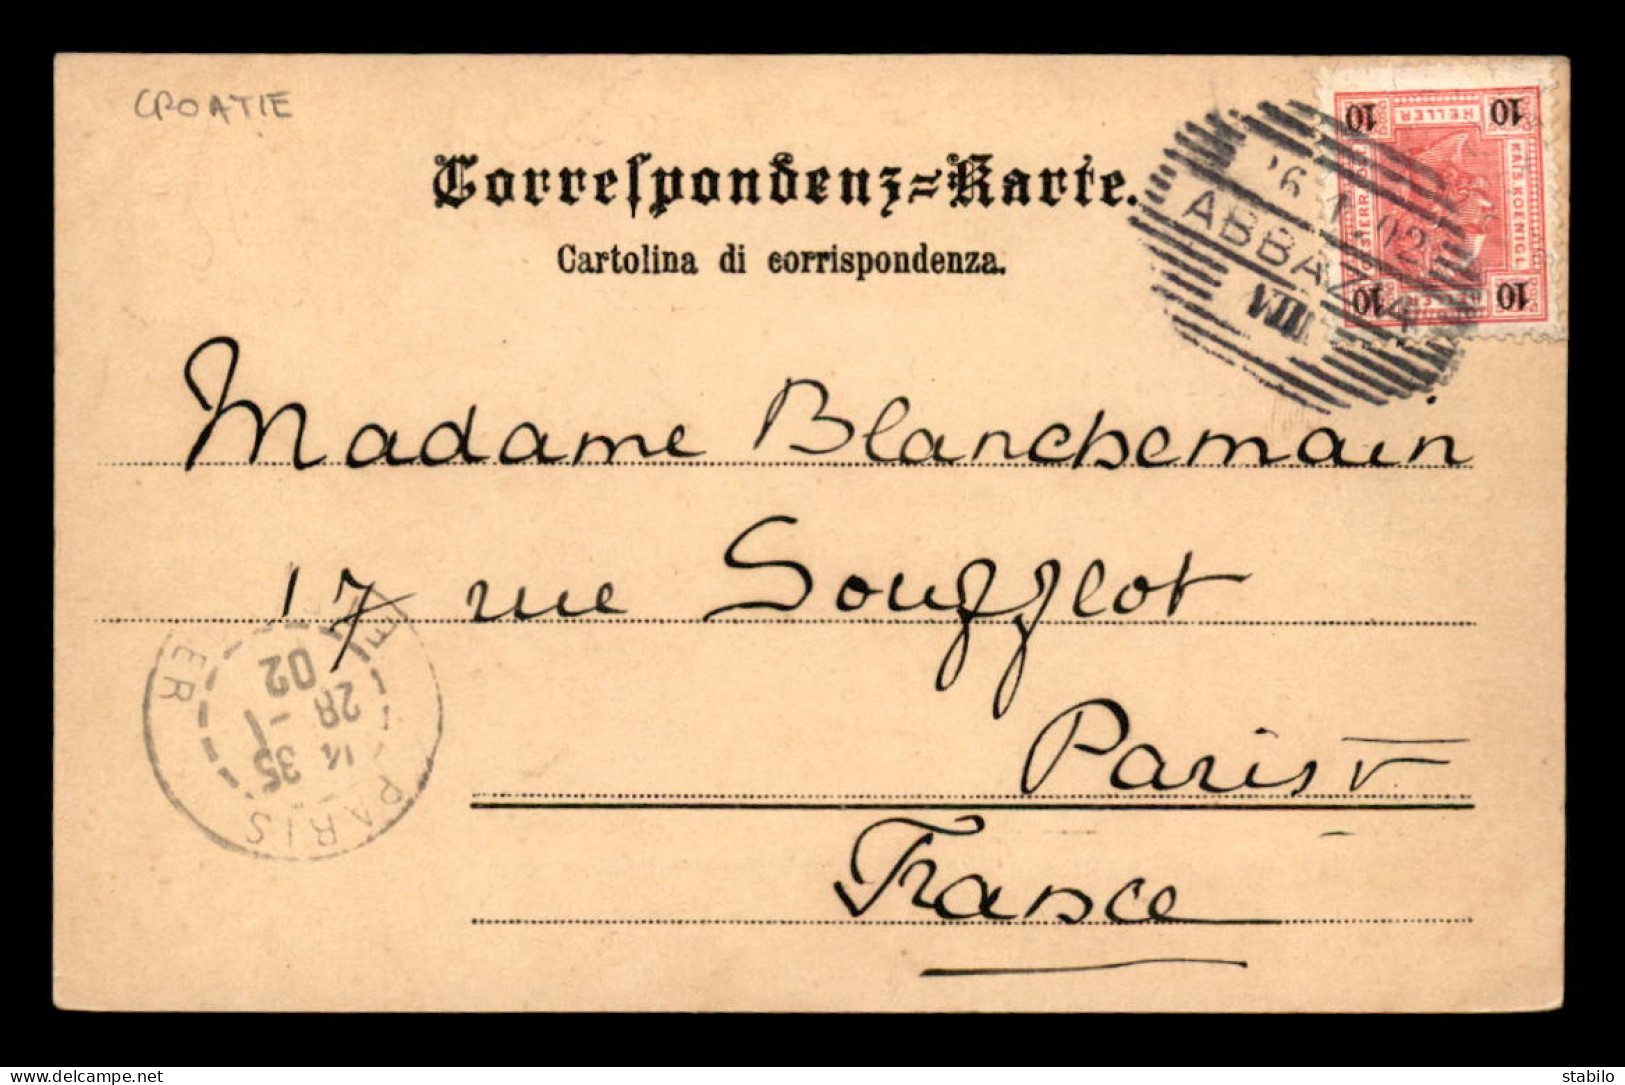 CROATIE
Correspondenz=Karte.
Cartolina di corrispondenza.
10 HELLER 10
KAIS. KOENIGL.
10 HELLER 10
26 1 02
ABBAZIA
VIII
Madame Blanchemain
17 rue Soufflot
Paris V
France
14 35
28 -1
02
PARIS
ER
delcampe.net
stabilo